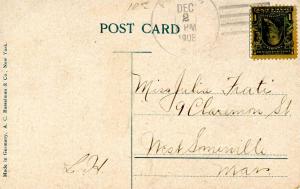 10¢
POST CARD
DEC
2
PM
1908
Made in Germany. A. C. Bosselman & Co., New York.
Miss Julia Frati
9 Claremon St.
West Somerville
Mass
L. H